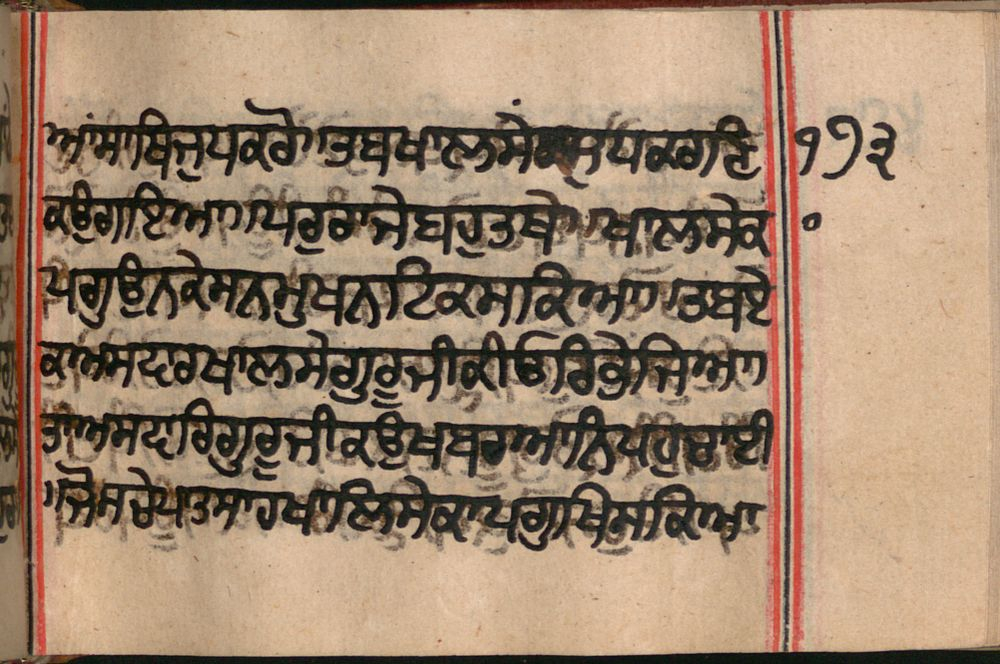 ਆਂਸਾਬਿਜੁਧਕਰੋ।ਤਬਖਾਲਸੇਂ ਜੁਧਕਰਾਇ ੧੭੩
ਕਉਗਾਇਆ।ਪਰੁਰਾਜੇਬਹੁਤਥੇ।ਖਾਲਸੇਕ
ਪਗੁਉਨਕੇਸਨਮੁਖਨਾਟਿਕਸਕਿਆ।ਤਬਏ
ਕਅਸਦਾਰਖਾਲਸੇਗੁਰੂਜੀਕੀਓਰਿਭੇਜਿਆ
ਤਾਅਸਦਾਰਿਗੁਰੂਜੀਕਉਖਬਰਆਨਿਪਹੁਚਾਈ
।ਜੋਸਚੇਪਾਤਸਾਹਖਾਲਿਸੇਕਾਪਗੁਖਿਸਕਿਆ